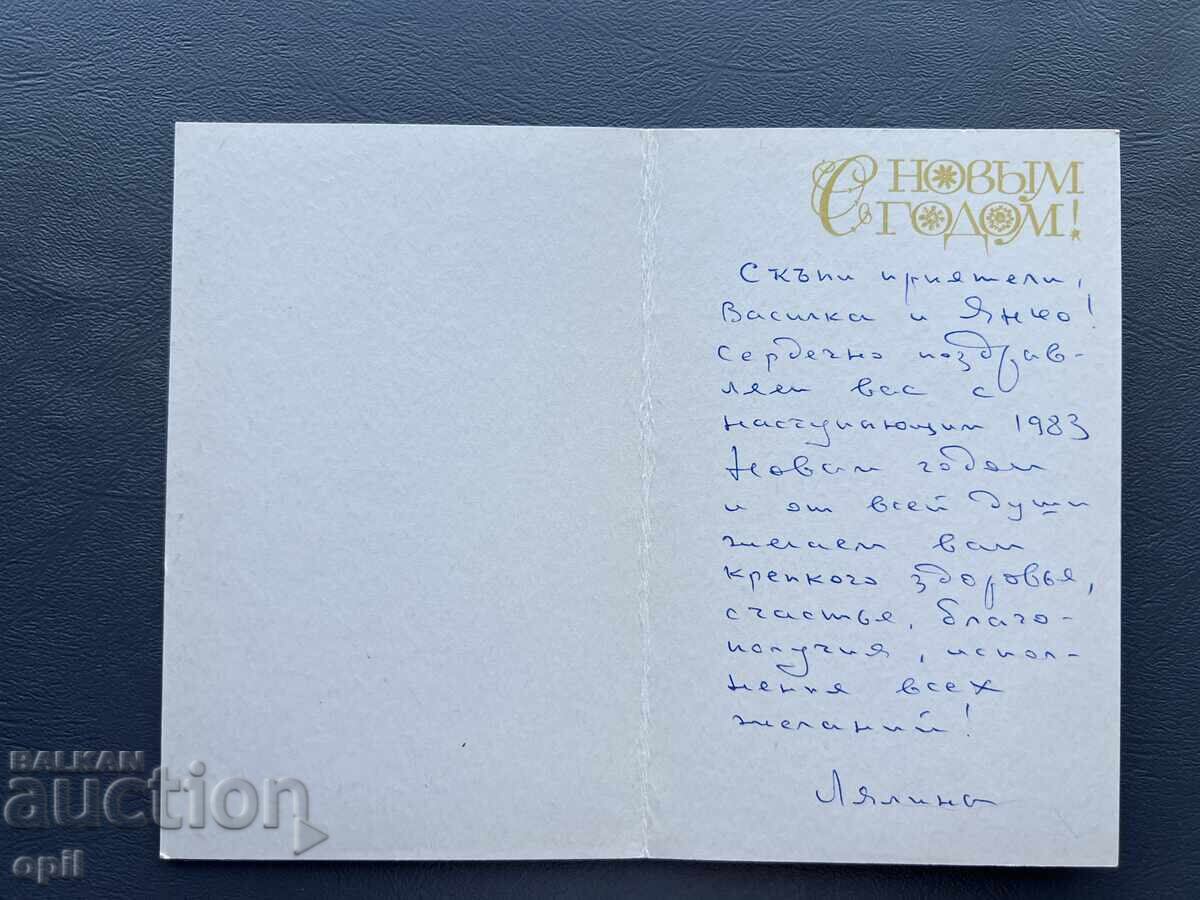 С НОВЫМ
ГОДОМ!
Скъпи приятели,
Василка и Янчо!
Сердечно поздрав-
ляем вас с
наступающим 1983
Новым годом
и от всей души
желаем вам
крепкого здоровья,
счастья, благо-
получия, испол-
нения всех
желаний!
Лялина
BALKAN
auction
opil